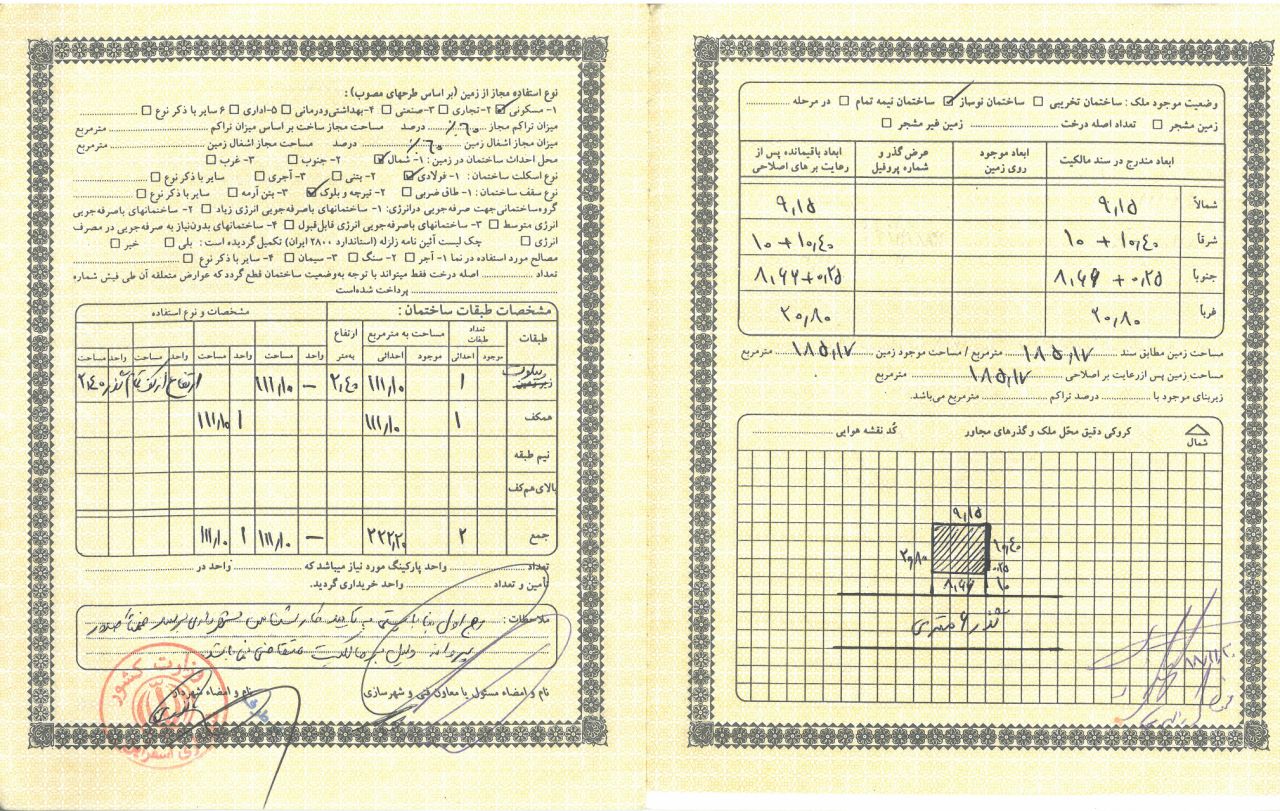 وضعیت موجود ملک : ساختمان تخریبی ☐ ساختمان نوساز ☑ ساختمان نیمه تمام ☐ در مرحله ..........
زمین مشجر ☐ تعداد اصله درخت .......... زمین غیر مشجر ☐
ابعاد مندرج در سند مالکیت ابعاد موجود روی زمین عرض گذر و شماره پروفیل ابعاد باقیمانده پس از رعایت بر های اصلاحی
شمالاً ۹,۱۵ ۹,۱۵
شرقا ۱۰ + ۱۰,۴۰ ۱۰ + ۱۰,۴۰
جنوبا ۸,۶۶ + ۰,۲۵ ۸,۶۶ + ۰,۲۵
غربا ۲۰,۸۰ ۲۰,۸۰
مساحت زمین مطابق سند ۱۸۵,۱۷ مترمربع / مساحت موجود زمین ۱۸۵,۱۷ مترمربع
مساحت زمین پس از رعایت بر اصلاحی ۱۸۵,۱۷ مترمربع
زیربنای موجود با .......... درصد تراکم .......... مترمربع می‌باشد.
شمال
کروکی دقیق محل ملک و گذرهای مجاور
کُد نقشه هوایی ..........
۹,۱۵
۲۰,۸۰
۱۰,۴۰
۰,۲۵
۸,۶۶ ۱۰
گذر ۶ متری
نوع استفاده مجاز از زمین (بر اساس طرحهای مصوب) :
۱- مسکونی ☑ ۲- تجاری ☐ ۳- صنعتی ☐ ۴- بهداشتی‌ودرمانی ☐ ۵- اداری ☐ ۶ سایر با ذکر نوع ☐ ..........
میزان تراکم مجاز ٪۶۰ درصد مساحت مجاز ساخت بر اساس میزان تراکم .......... مترمربع
میزان مجاز اشغال زمین ٪۶۰ درصد مساحت مجاز اشغال زمین .......... مترمربع
محل احداث ساختمان در زمین : ۱- شمال ☑ ۲- جنوب ☐ ۳- غرب ☐
نوع اسکلت ساختمان : ۱- فولادی ☑ ۲- بتنی ☐ ۳- آجری ☐ سایر با ذکر نوع ☐ ..........
نوع سقف ساختمان : ۱- طاق ضربی ☐ ۲- تیرچه و بلوک ☑ ۳- بتن آرمه ☐ سایر با ذکر نوع ☐ ..........
گروه ساختمانی جهت صرفه‌جویی درانرژی: ۱- ساختمانهای باصرفه‌جویی انرژی زیاد ☐ ۲- ساختمانهای باصرفه‌جویی
انرژی متوسط ☐ ۳- ساختمانهای باصرفه‌جویی انرژی قابل‌قبول ☐ ۴- ساختمانهای بدون‌نیاز به صرفه‌جویی در مصرف
انرژی ☐ چک لیست آئین نامه زلزله (استاندارد ۲۸۰۰ ایران) تکمیل گردیده است : بلی ☐ خیر ☐
مصالح مورد استفاده در نما ۱- آجر ☐ ۲- سنگ ☐ ۳- سیمان ☐ ۴- سایر با ذکر نوع ☐ ..........
تعداد .......... اصله درخت فقط میتواند با توجه به‌وضعیت ساختمان قطع گردد که عوارض متعلقه آن طی فیش شماره
.......... پرداخت شده‌است
مشخصات طبقات ساختمان : مشخصات و نوع استفاده
طبقات تعداد طبقات مساحت به مترمربع ارتفاع
موجود احداثی موجود احداثی به‌متر واحد مساحت واحد مساحت واحد مساحت واحد مساحت
پیلوت
زیرزمین ۱ ۱۱۱,۱۰ ۲,۴۰ — ۱۱۱,۱۰ ارتفاع از کف تمام شده گذر ۲,۴۰
همکف ۱ ۱۱۱,۱۰ ۱ ۱۱۱,۱۰
نیم طبقه
بالای هم‌کف
جمع ۲ ۲۲۲,۲۰ — ۱۱۱,۱۰ ۱ ۱۱۱,۱۰
تعداد .......... واحد پارکینگ مورد نیاز میباشد که .......... واحد در ..........
تأمین و تعداد .......... واحد خریداری گردید.
ملاحظات : رج اول بنا بایستی به تایید کارشناس شهرداری برسد ضمناً صدور
پروانه دلیل بر مالکیت متقاضی نمیباشد
نام و امضاء مسئول یا معاون فنی و شهرسازی
نام و امضاء شهردار
وزارت کشور